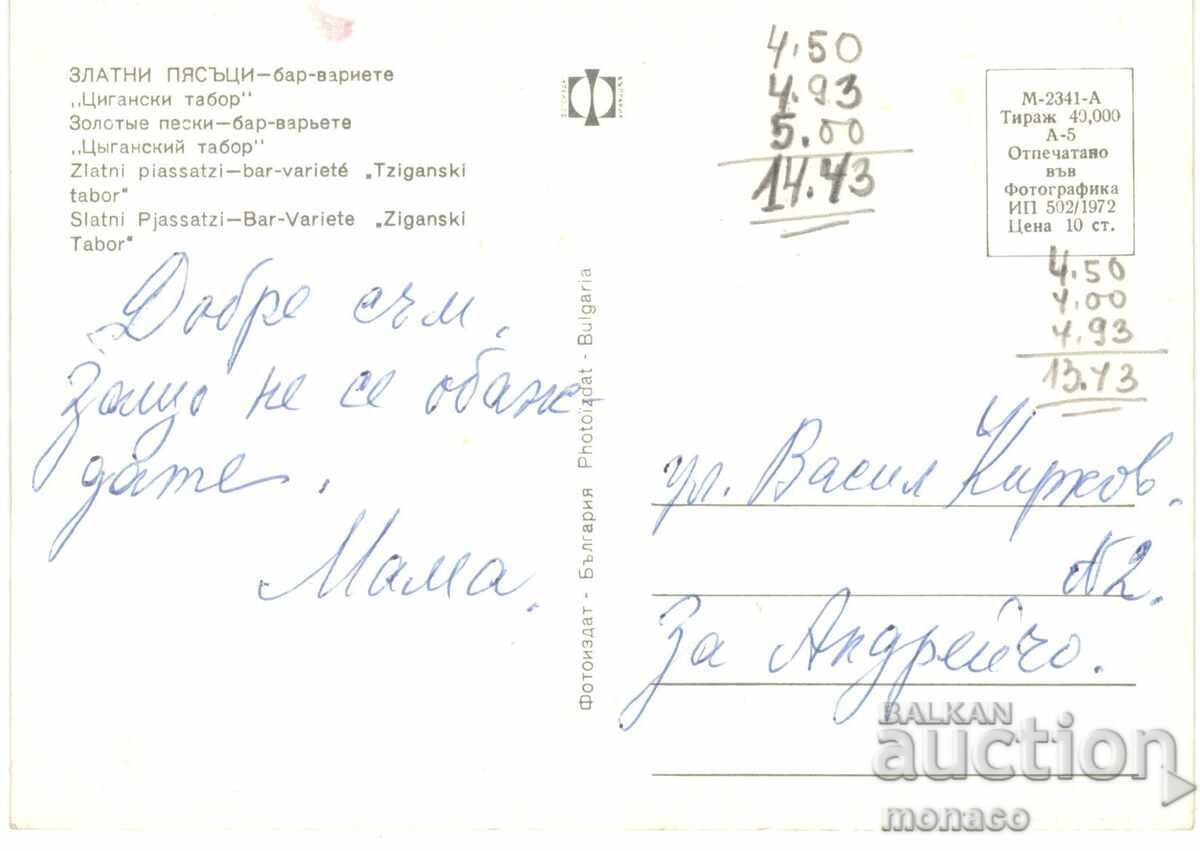 ЗЛАТНИ ПЯСЪЦИ—бар-вариете
„Цигански табор"
Золотые пески—бар-варьете
„Цыганский табор"
Zlatni piassatzi—bar-varieté „Tziganski
tabor"
Slatni Pjassatzi—Bar-Variete „Ziganski
Tabor"
Добре съм.
Защо не се обаж-
дате.
Мама.
Фотоиздат - България Photoïzdat - Bulgaria
4.50
4.93
5.00
14.43
М-2341-А
Тираж 40,000
А-5
Отпечатано
във
Фотографика
ИП 502/1972
Цена 10 ст.
4.50
4.00
4.93
13.43
ул. Васил Кирков.
№2.
За Андрейчо.
BALKAN
auction
monaco